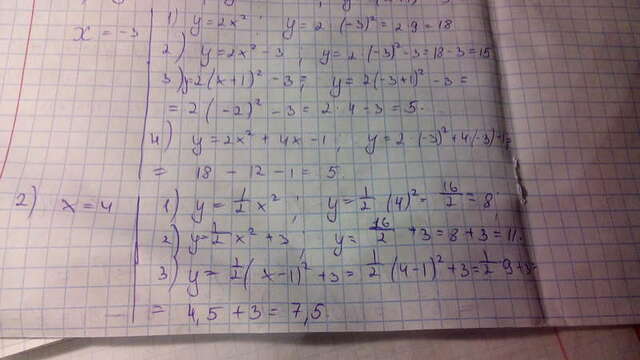 x = -3
1) y = 2x²; y = 2(-3)² = 2·9 = 18
2) y = 2x² - 3; y = 2(-3)² - 3 = 18 - 3 = 15
3) y = 2(x+1)² - 3; y = 2(-3+1)² - 3 =
= 2(-2)² - 3 = 2·4 - 3 = 5.
4) y = 2x² + 4x - 1; y = 2·(-3)² + 4·(-3) - 1 =
= 18 - 12 - 1 = 5.
2) x = 4
1) y = 1/2 x²; y = 1/2 (4)² = 16/2 = 8;
2) y = 1/2 x² + 3; y = 16/2 + 3 = 8 + 3 = 11.
3) y = 1/2 (x-1)² + 3 = 1/2 (4-1)² + 3 = 1/2 9 + 3
= 4,5 + 3 = 7,5